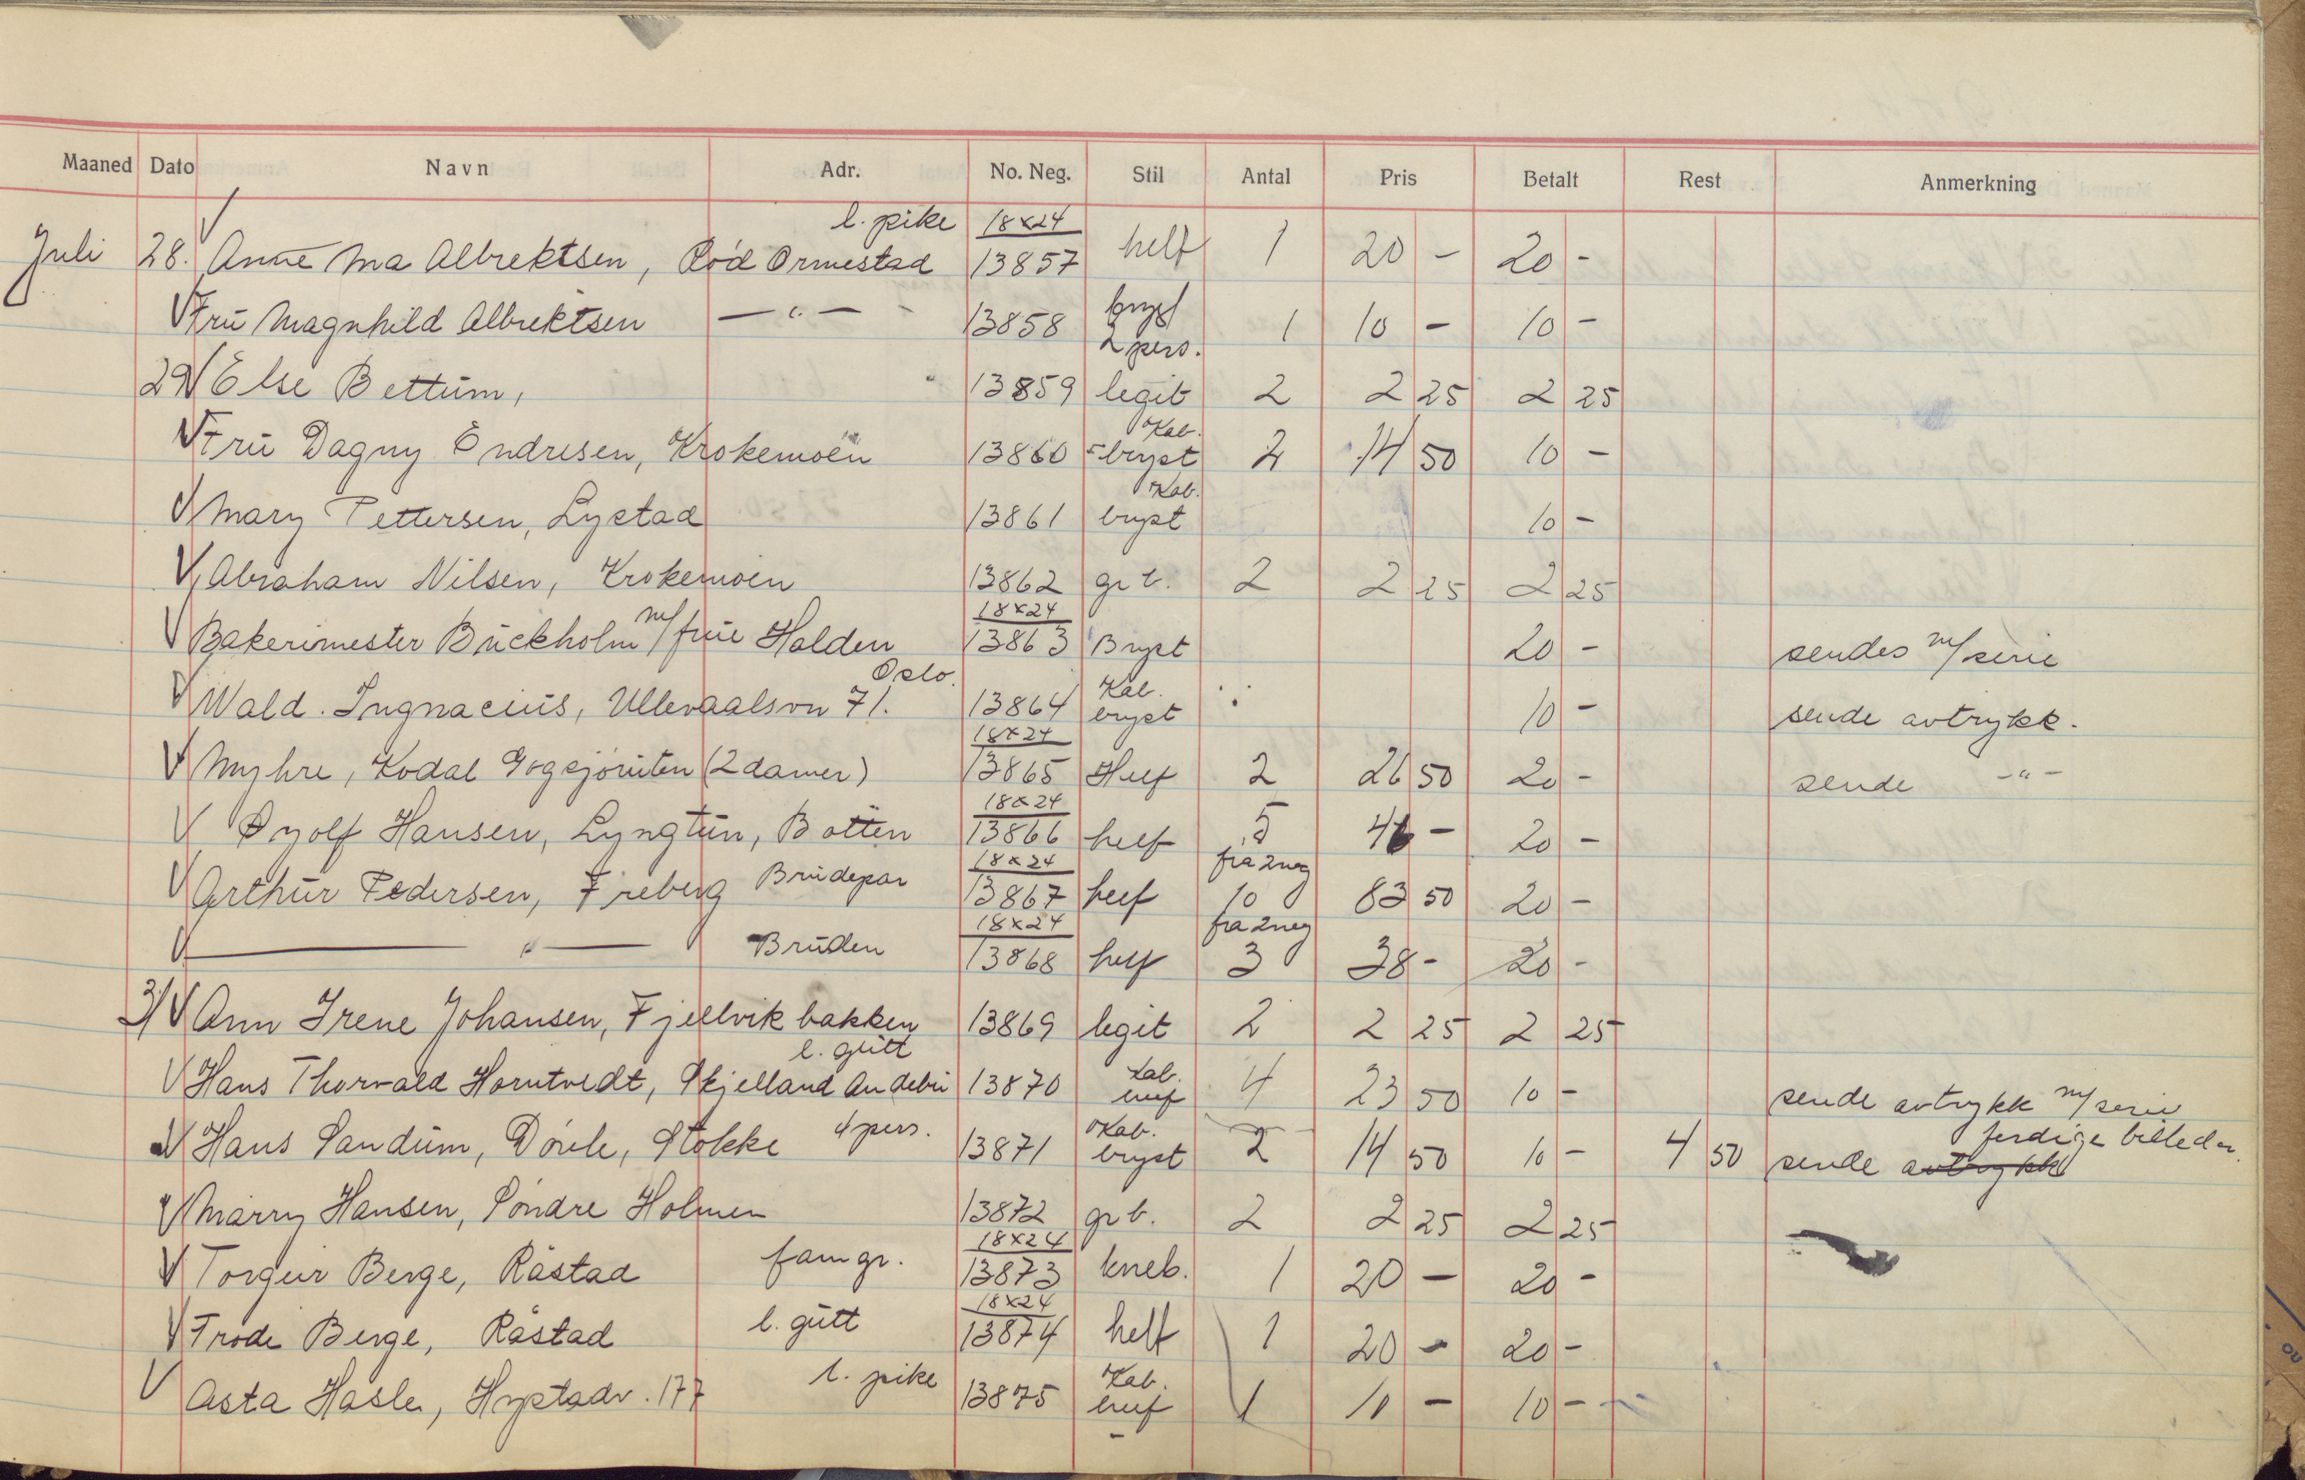 Maaned Dato Navn Adr. No. Neg. Stil Antal Pris Betalt Rest Anmerkning
l. pike 18x24
Juli 28. Anne Ma Albrektsen, Rød Ormestad 13857 helf 1 20 - 20 -
Fru Magnhild Albrektsen — " — 13858 bryst 2 pers. 1 10 - 10 -
29 Else Bettum, 13859 legit 2 2 25 2 25
Kab.
Fru Dagny Endresen, Krokemoen 13860 bryst 2 14 50 10 -
Kab.
Mary Pettersen, Lystad 13861 bryst 10 -
Abraham Nilsen, Krokemoen 13862 gr b. 2 2 25 2 25
18x24
Bakerimester Buckholm m/ frue Halden 13863 Bryst 20 - sendes m/ serie
Oslo. Kab.
Wald. Ingnacius, Ullevaalsvn 71. 13864 bryst 10 - sende avtrykk.
18x24
Myhre, Kodal Gogsjøruten (2 damer) 13865 Helf 2 26 50 20 - sende -"-
18x24
Øyolf Hansen, Lyngtun, Botten 13866 helf 5 46 - 20 -
18x24 fra 2 neg
Arthur Pedersen, Freberg Brudepar 13867 helf 10 83 50 20 -
18x24 fra 2 neg
— " — Bruden 13868 helf 3 38 - 20 -
31 Ann Irene Johansen, Fjellvikbakken 13869 legit 2 2 25 2 25
l. gutt Kab.
Hans Thorvald Horntvedt, Skjelland Andebu 13870 4 23 50 10 - sende avtrykk m/ serie
4 pers. Kab. ferdige billeder.
Hans Sandum, Døvle, Stokke 13871 bryst 2 14 50 10 - 4 50 sende avtrykk
Marry Hansen, Søndre Holmen 13872 gr b. 2 2 25 2 25
18x24
Torgeir Berge, Råstad fam gr. 13873 kneb. 1 20 - 20 -
18x24
Frode Berge, Råstad l. gutt 13874 helf 1 20 - 20 -
l. pike Kab.
Asta Hasle, Hystadv. 177 13875 1 10 - 10 -